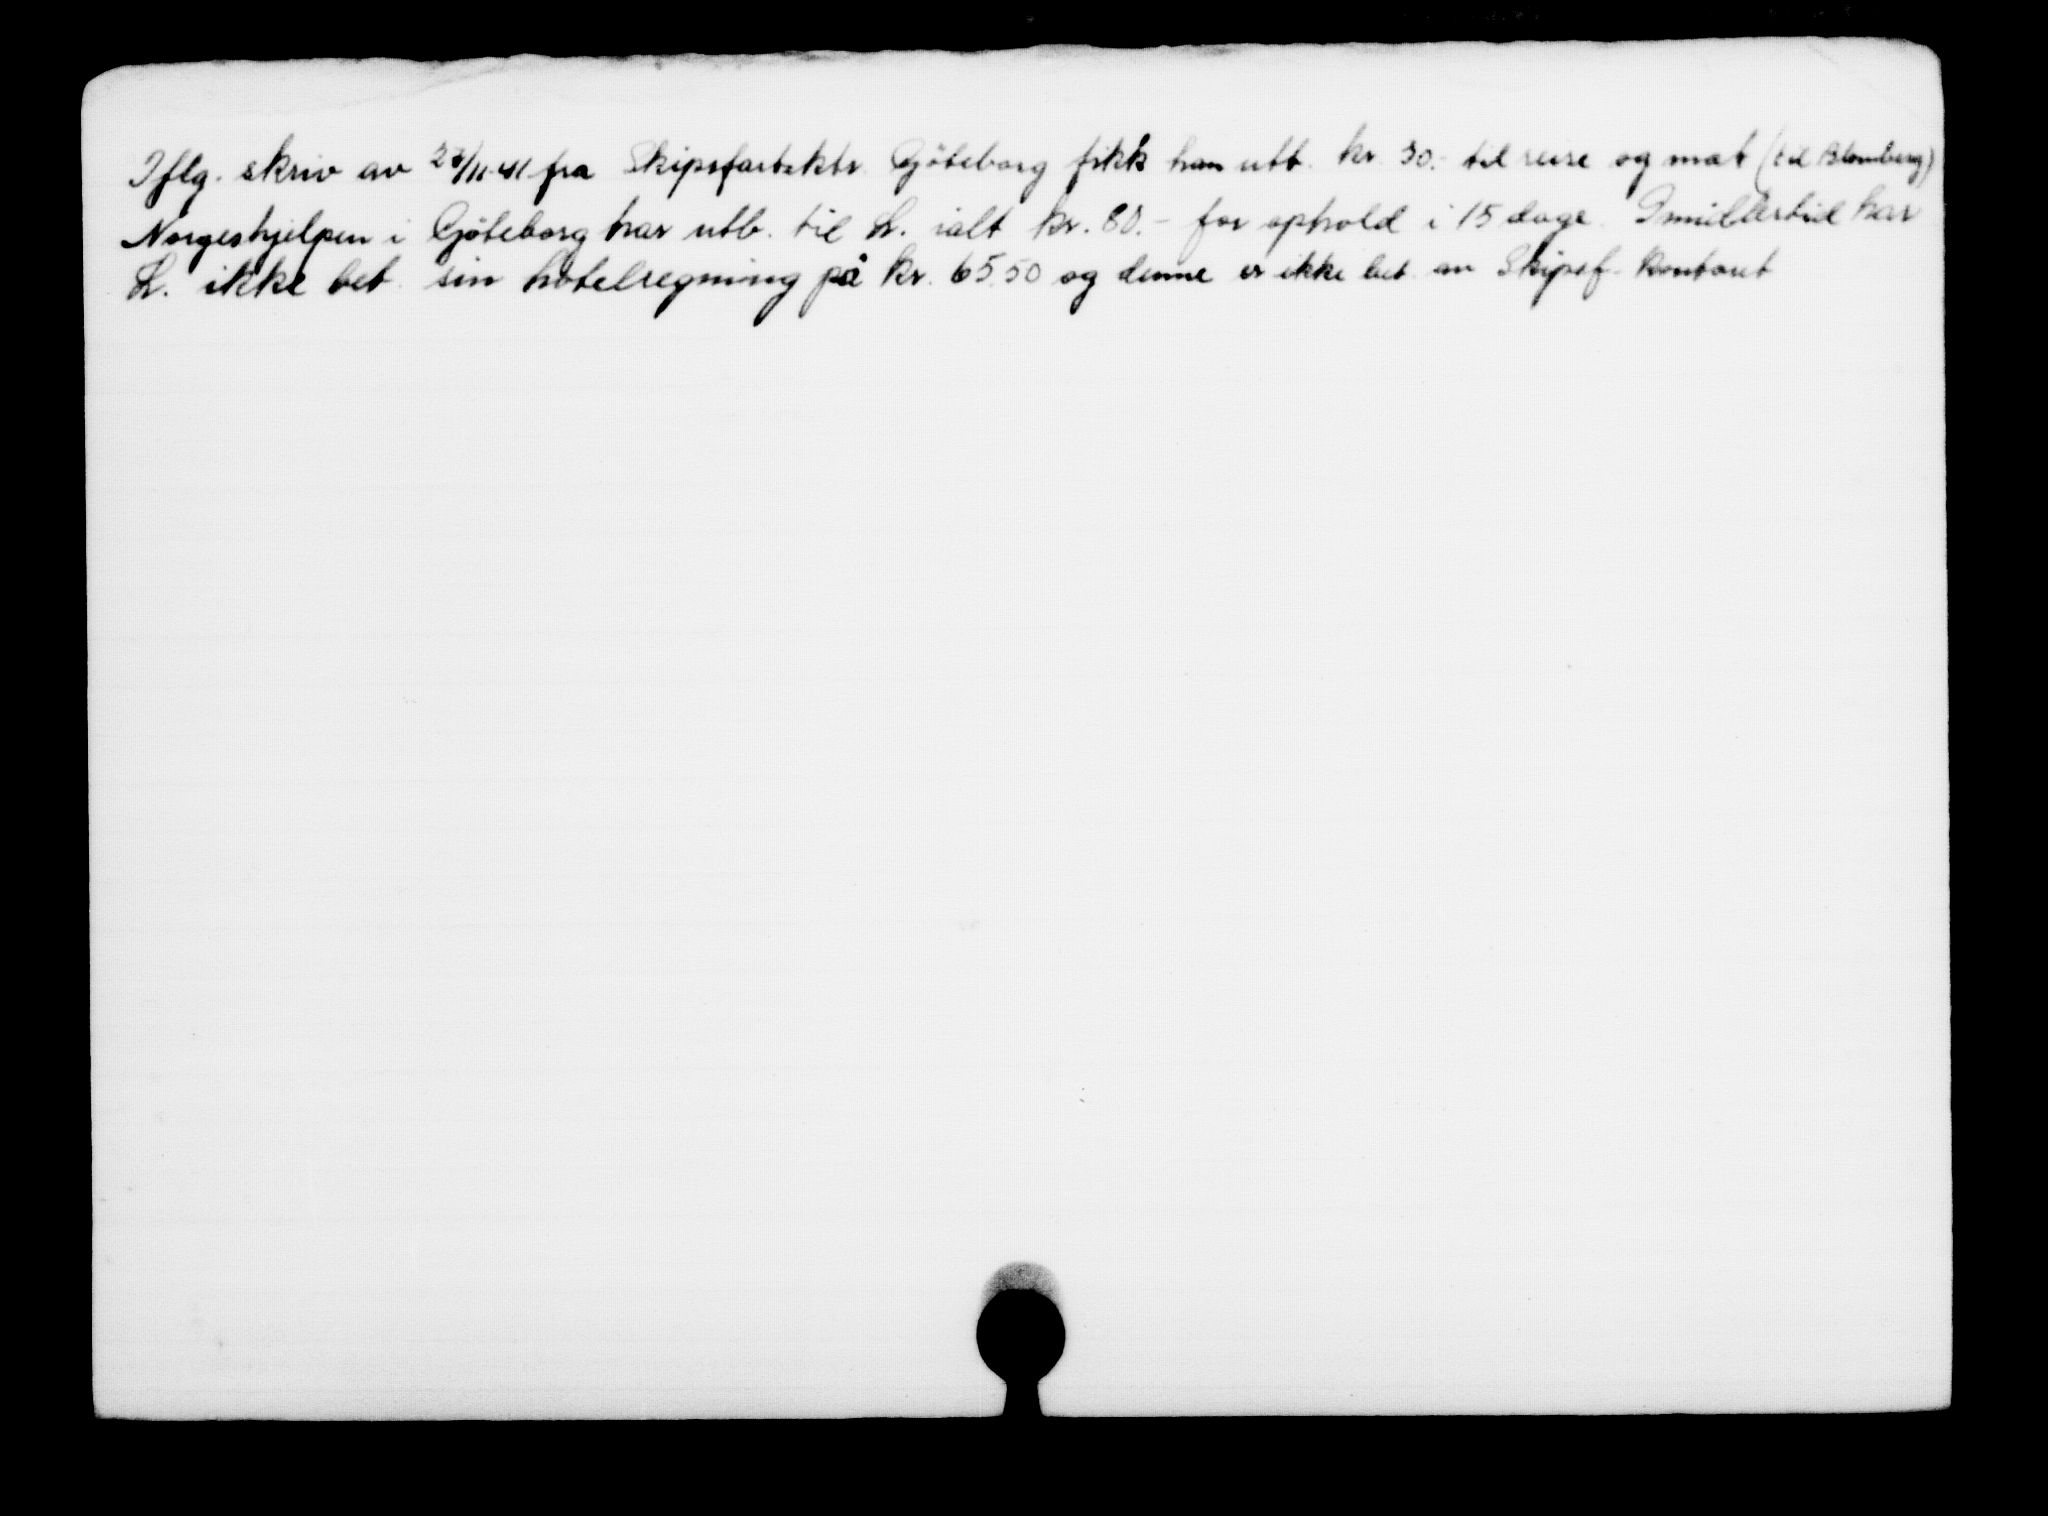 Iflg. skriv av 27/11-41 fra Skipsfartsktr. Göteborg fikk han utb. kr. 30.- til reise og mat (til Blomberg)
Norgeshjelpen i Göteborg har utb. til L. ialt kr. 80.- for ophold i 15 dage. Imidlertid har
L. ikke bet. sin hotelregning på kr. 65.50 og denne er ikke bet. av Skipsf. Kontoret